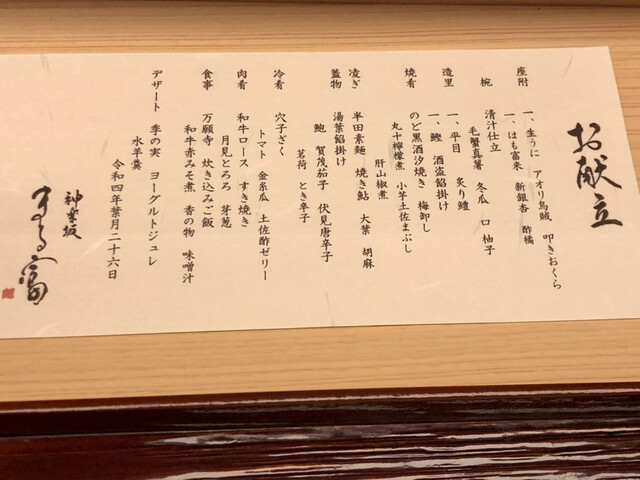 お献立
座附 一、生うに アオリ烏賊 叩きおくら
一、はも富来 新銀杏 酢橘
椀 清汁仕立
毛蟹真薯 冬瓜 口 柚子
造里 一、平目 炙り鱧
一、鰹 酒盗餡掛け
焼肴 のど黒酒汐焼き 梅卸し
丸十檸檬煮 小芋土佐まぶし
肝山椒煮
凌ぎ 半田素麺 焼き鮎 大葉 胡麻
蓋物 湯葉餡掛け
鮑 賀茂茄子 伏見唐辛子
茗荷 とき辛子
冷肴 穴子ざく
トマト 金糸瓜 土佐酢ゼリー
肉肴 和牛ロース すき焼き
月見とろろ 芽葱
食事 万願寺 炊き込みご飯
和牛赤みそ煮 香の物 味噌汁
デザート 季の実 ヨーグルトジュレ
水羊羹
令和四年葉月二十六日
神楽坂
富